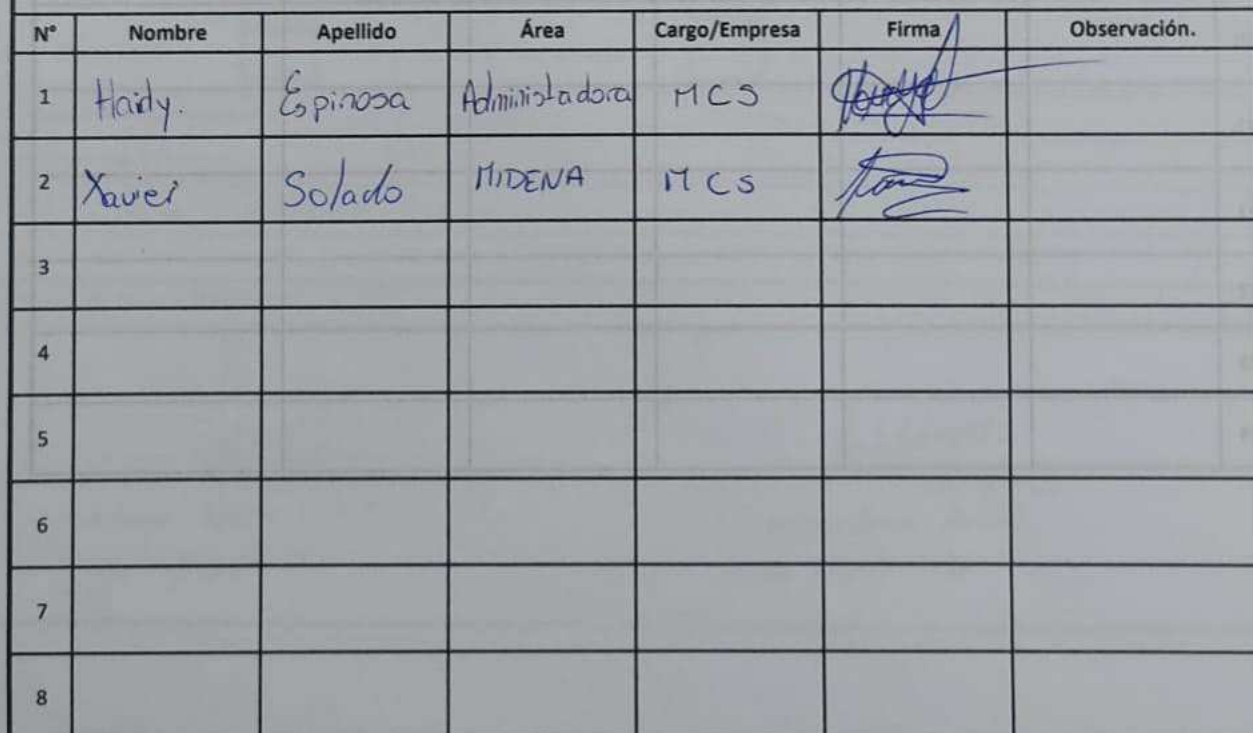 N° Nombre Apellido Área Cargo/Empresa Firma Observación.
1 Haidy. Espinosa Administadora MCS
2 Xavier Solado MIDENA MCS
3
4
5
6
7
8